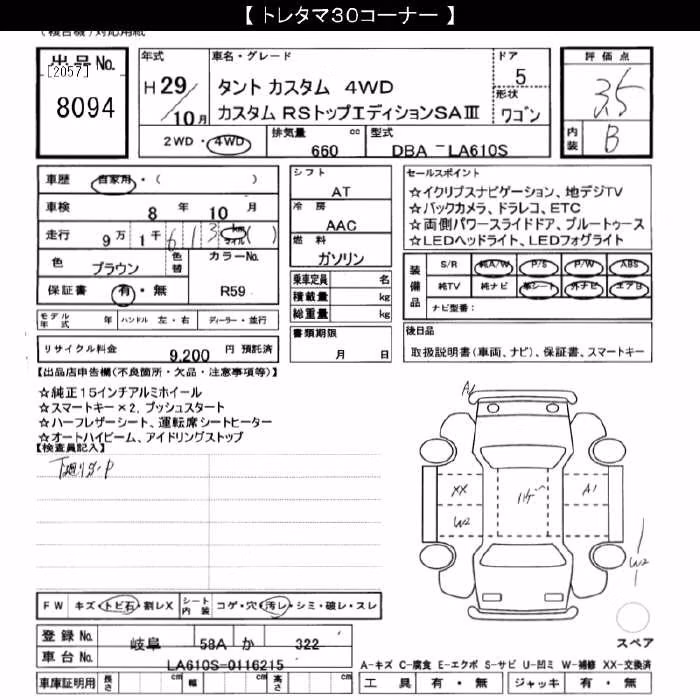 【 トレタマ30コーナー 】
(複合機)対応用紙
出品No.
[2057]
8094
年式
H 29/10月
車名・グレード
タント カスタム 4WD
カスタム RSトップエディションSAⅢ
ドア
5
形状
ワゴン
評価点
3.5
内装
B
2WD・4WD
排気量 660 cc
型式 DBA -LA610S
車歴 自家用・( )
車検 8 年 10 月
走行 9万 1千 6 1 3 km マイル ( )
色 ブラウン
色替
カラーNo. R59
保証書 有・無
モデル年式 年
ハンドル 左・右
ディーラー・並行
リサイクル料金 9,200 円 預託済
シフト
AT
冷房
AAC
燃料
ガソリン
乗車定員 名
積載量 kg
総重量 kg
書類期限
月 日
セールスポイント
☆イクリプスナビゲーション、地デジTV
☆バックカメラ、ドラレコ、ETC
☆両側パワースライドドア、ブルートゥース
☆LEDヘッドライト、LEDフォグライト
装備品
S/R 純A/W P/S P/W ABS
純TV 純ナビ 革シート 外ナビ エアB
ナビ型番:
後日品
取扱説明書(車両、ナビ)、保証書、スマートキー
【出品店申告欄(不良箇所・欠品・注意事項等)】
☆純正15インチアルミホイール
☆スマートキー×2、プッシュスタート
☆ハーフレザーシート、運転席シートヒーター
☆オートハイビーム、アイドリングストップ
【検査員記入】
A1
XX
W2
A1
W2
FW キズ・トビ石・割レX
シート内装 コゲ・穴・汚レ・シミ・破レ・スレ
登録No. 岐阜 58A か 322
車台No. LA610S-0116215
車庫証明用 長さ cm 幅 cm 高さ cm
スペア
A-キズ C-腐食 E-エクボ S-サビ U-凹ミ W-補修 XX-交換済
工具 有・無 ジャッキ 有・無